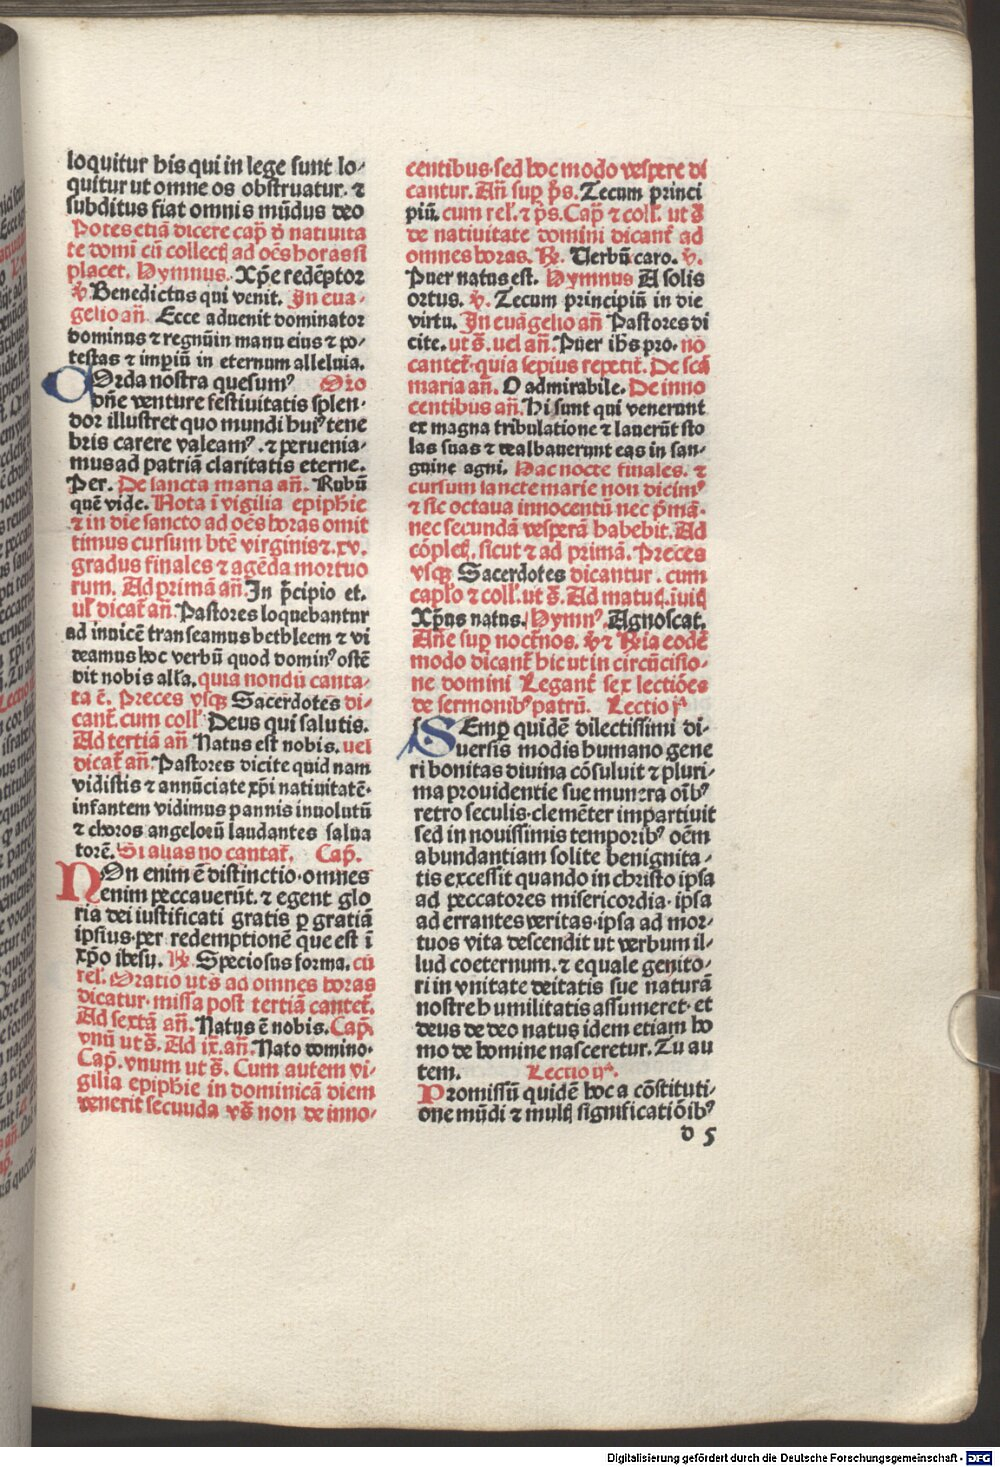 loquitur his qui in lege sunt lo-
quitur ut omne os obstruatur. ⁊
subditus fiat omnis mūdus deo
Potes etiā dicere cap̄ d̄ nativita
te domī cū collectꝭ ad oēs horas si
placet. Hymnus. Xp̄e redēptor
v̄. Benedictus qui venit. In eua-
gelio añ. Ecce aduenit dominator
dominus ⁊ regnūin manu eius ⁊ po-
testas ⁊ imꝑiū in eternum alleluia.
COrda nostra quesumꝰ Oro
oñe venture festiuitatis splen-
dor illustret quo mundi huiꝰ tene
bris carere valeamꝰ. ⁊ peruenia-
mus ad patriā claritatis eterne.
Per. De sancta maria añ. Rubū
quē vide. Nota ī vigilia epiphie
⁊ in die sancto ad oēs horas omit
timus cursum btē virginis ⁊.xv.
gradus finales ⁊ agēda mortuo
rum. Ad primā añ. In p̄cipio et.
ul' dicat̄ añ. Pastores loquebantur
ad inuicē transeamus bethleem ⁊ vi
deamus hoc verbū quod dominꝰ ostē
dit nobis alła. quia nondū canta-
ta ē. Preces vsqꝫ Sacerdotes di-
cant̄. cum coll' Deus qui salutis.
Ad tertiā añ Natus est nobis. uel
dicat̄ añ. Pastores dicite quid nam
vidistis ⁊ annūciate xp̄i nativitatē.
infantem vidimus pannis inuolutū
⁊ choros angelorū laudantes salua
torē. Si alias no cantat̄. Cap̄.
NOn enim ē distinctio. omnes
enim peccauerūt. ⁊ egent glo
ria dei iustificati gratis ꝑ gratiā
ipsius. per redemptionē que est ī
xp̄o ihesu. ℟. Speciosus forma. cū
rel'. Oratio ut s̄ ad omnes horas
dicatur. missa post tertiā cantet̄.
Ad sextā añ. Natus ē nobis. Cap̄.
vnū ut s̄. Ad ix. añ. Nato domino.
Cap̄. vnum ut s̄. Cum autem vi-
gilia epiphie in dominicā diem
venerit secuuda vs̄ non de inno-
centibus. sed hoc modo vespere di
cantur. Añ suꝑ p̄s. Tecum princi
piū. cum rel'. ⁊ p̄s. Cap̄ ⁊ coll'. ut s̄
de natiuitate domini dicant̄ ad
omnes horas. ℟. Verbū caro. v̄.
Puer natus est. Hymnus A solis
ortus. v̄. Tecum principiū in die
virtu. In euāgelio añ Pastores di
cite. ut s̄. uel añ. Puer ihs pro. no
cantet̄. quia sepius repetit̄. De scā
maria añ. O admirabile. De inno
centibus añ. Hi sunt qui venerunt
ex magna tribulatione ⁊ lauerūt sto
las suas ⁊ dealbauerunt eas in san-
guine agni. Hac nocte finales. ⁊
cursum sancte marie non dicimꝰ
⁊ sic octaua innocentū nec p̄mā.
nec secundā vesperā habebit. Ad
cōpletꝭ. sicut ⁊ ad primā. Preces
vsqꝫ Sacerdotes dicantur. cum
capl'o ⁊ coll'. ut s̄. Ad matuꝭ. īuiꝭ
Xp̄us natus. Hymnꝰ. Agnoscat.
Añe suꝑ noctnos. v̄ ⁊ ℟ia eodē
modo dicant̄ hic ut in circūcisio-
ne domini Legant̄ sex lectiōes
de sermonibꝰ patrū. Lectio jᵃ
SEmꝑ quidē dilectissimi di-
uersis modis humano gene
ri bonitas diuina cōsuluit ⁊ pluri-
ma prouidentie sue munera oībꝰ
retro seculis. clemēter impartiuit
sed in nouissimis temporibꝰ oēm
abundantiam solite benignita-
tis excessit quando in christo ipsa
ad peccatores misericordia. ipsa
ad errantes veritas. ipsa ad mor-
tuos vita descendit ut verbum il-
lud coeternum. ⁊ equale genito-
ri in vnitate deitatis sue naturā
nostre humilitatis assumeret. et
deus de deo natus idem etiam ho
mo de homine nasceretur. Tu au
tem. Lectio ijᵃ.
Promissū quidē hoc a cōstituti-
one mūdi ⁊ multꝭ significatiōibꝰ
d 5
Digitalisierung gefördert durch die Deutsche Forschungsgemeinschaft - DFG